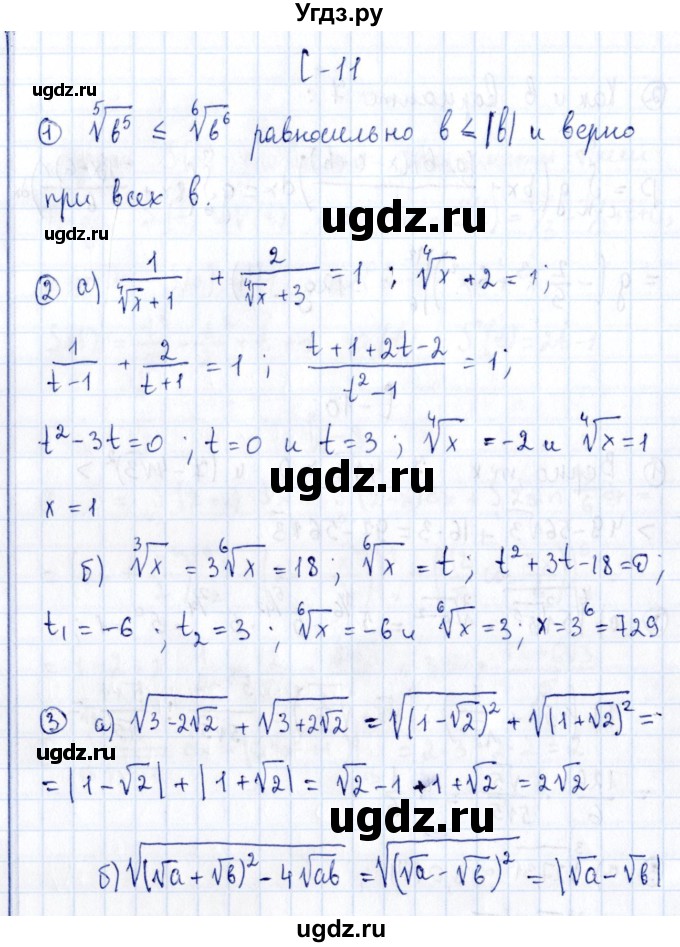 Угдз.ру
С-11
ugdz.ru
① ⁵√в⁵ ≤ ⁶√в⁶ равносильно в ≤ |в| и верно
при всех в.
ugdz.ru
ugdz.ru
② а) 1/(⁴√x + 1) + 2/(⁴√x + 3) = 1 ; ⁴√x + 2 = 1;
1/(t-1) + 2/(t+1) = 1 ; (t+1+2t-2)/(t²-1) = 1;
t²-3t=0 ; t=0 и t=3 ; ⁴√x = -2 и ⁴√x = 1
ugdz.ru
x = 1
б) ³√x = 3⁶√x = 18 ; ⁶√x = t ; t²+3t-18=0 ;
t₁ = -6 ; t₂ = 3 ; ⁶√x = -6 и ⁶√x = 3 ; x = 3⁶ = 729
ugdz.ru
③ а) √(3-2√2) + √(3+2√2) = √((1-√2)²) + √((1+√2)²) =
ugdz.ru
= |1-√2| + |1+√2| = √2-1+1+√2 = 2√2
ugdz.ru
б) √((√a+√в)²-4√aв) = √((√a-√в)²) = |√a-√в|
ugdz.ru